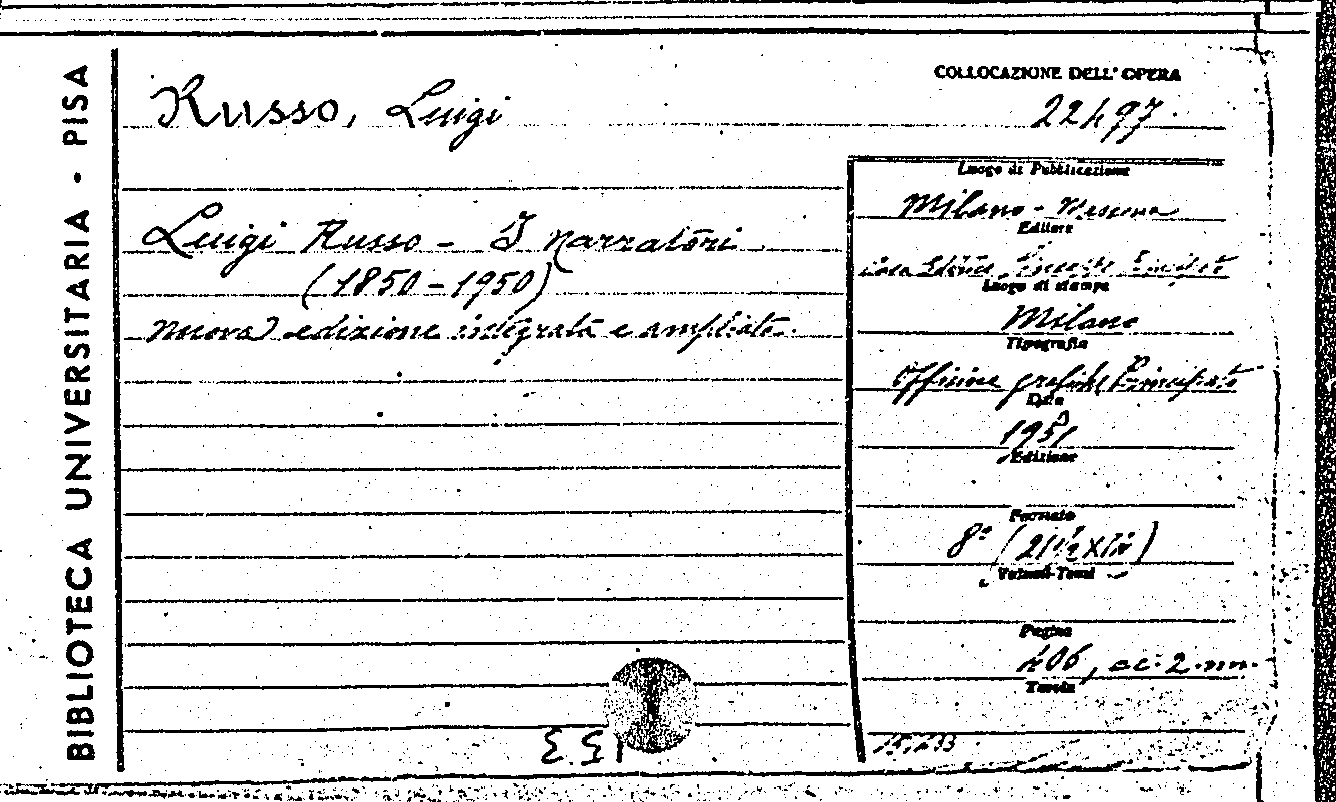 BIBLIOTECA UNIVERSITARIA · PISA
Russo, Luigi
COLLOCAZIONE DELL'OPERA
22497.
Luigi Russo - I narratori
(1850-1950)
nuova edizione integrata e ampliata.
Luogo di Pubblicazione
Milano - Messina
Editore
Casa Editrice Principato
Luogo di stampa
Milano
Tipografia
Officine grafiche Principato
Data
1951
Edizione
Formato
8°
Volumi-Tomi
Pagine
406, cc. 2 nn.
Tavole